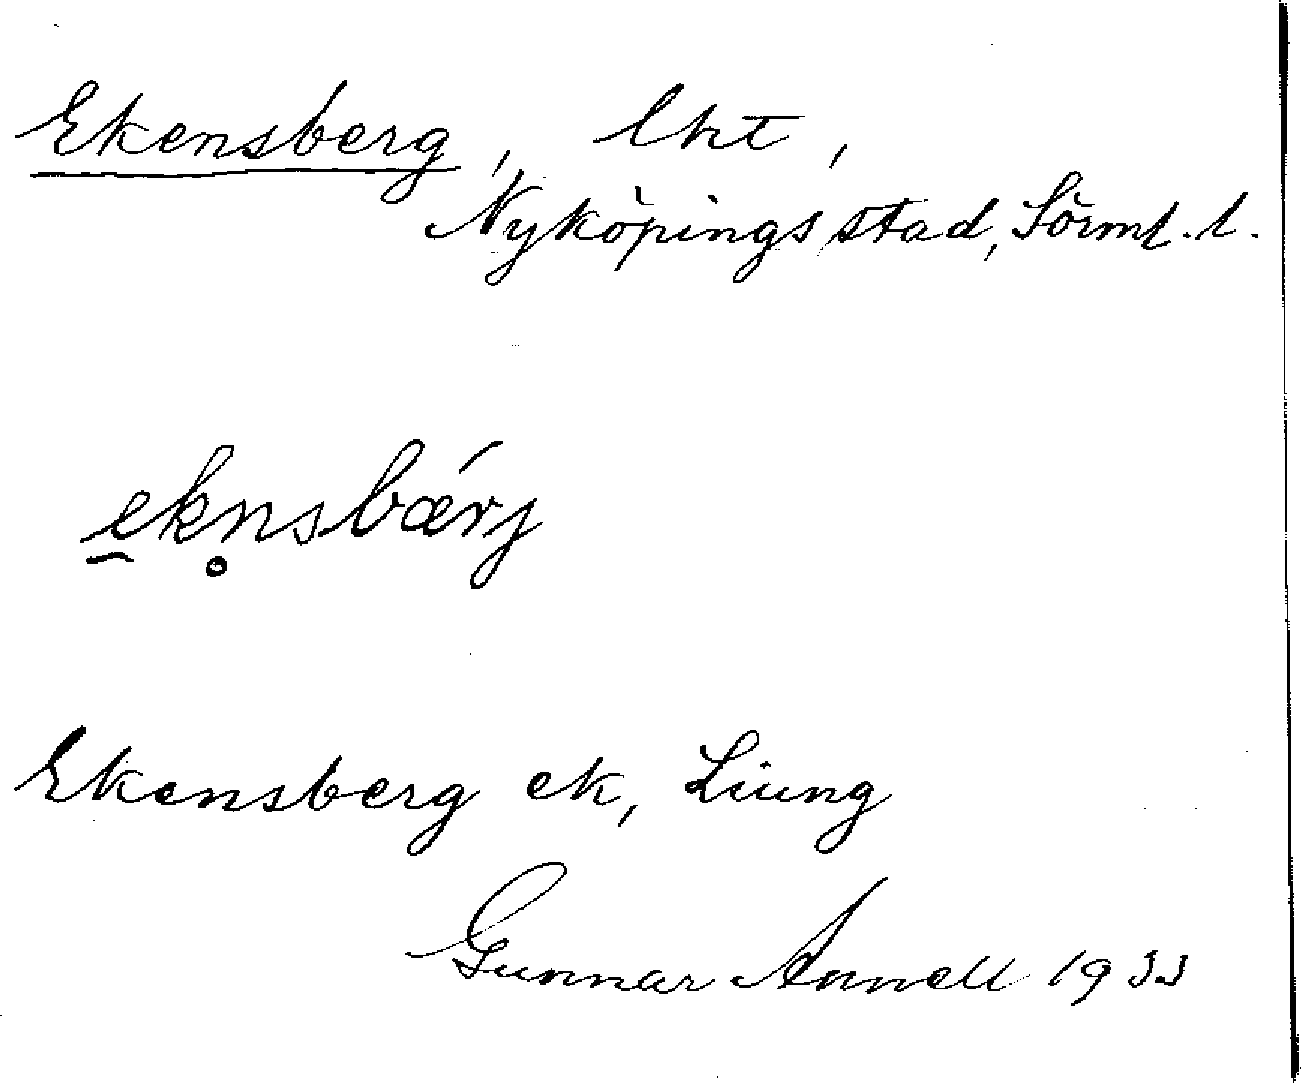 Ekensberg, lht,
Nyköpings stad, Sörml. l.
ekn̥sbærj
Ekensberg ek, Liung
Gunnar Annell 1933